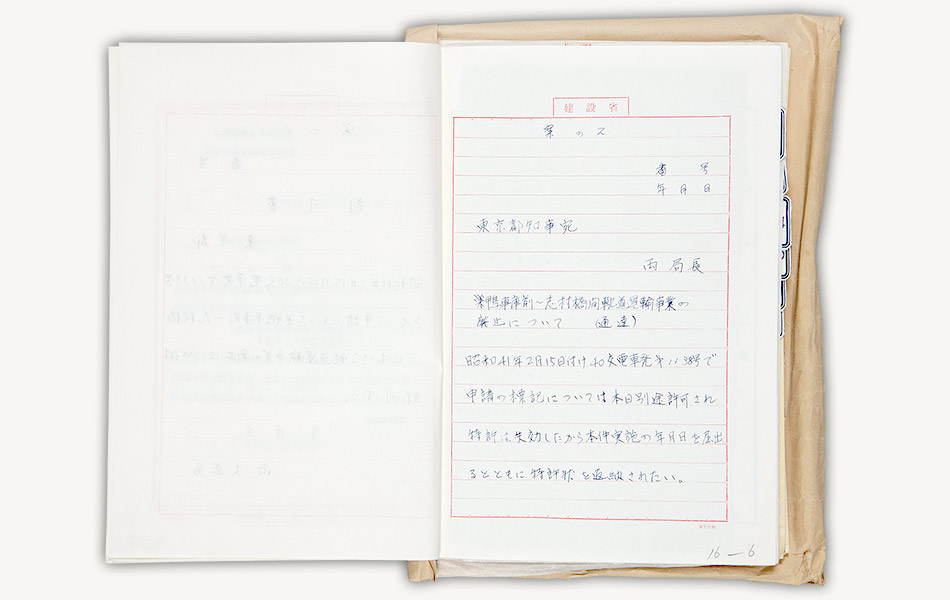 建設省
案の2
番号
年月日
東京都知事宛
両局長
巣鴨車庫前~志村橋間軌道運輸事業の
廃止について (通達)
昭和41年2月15日付け40交電車発第1138号で
申請の標記については本日別途許可され
特許は失効したから本件実施の年月日を届出
るとともに特許状を返納されたい。
16-6